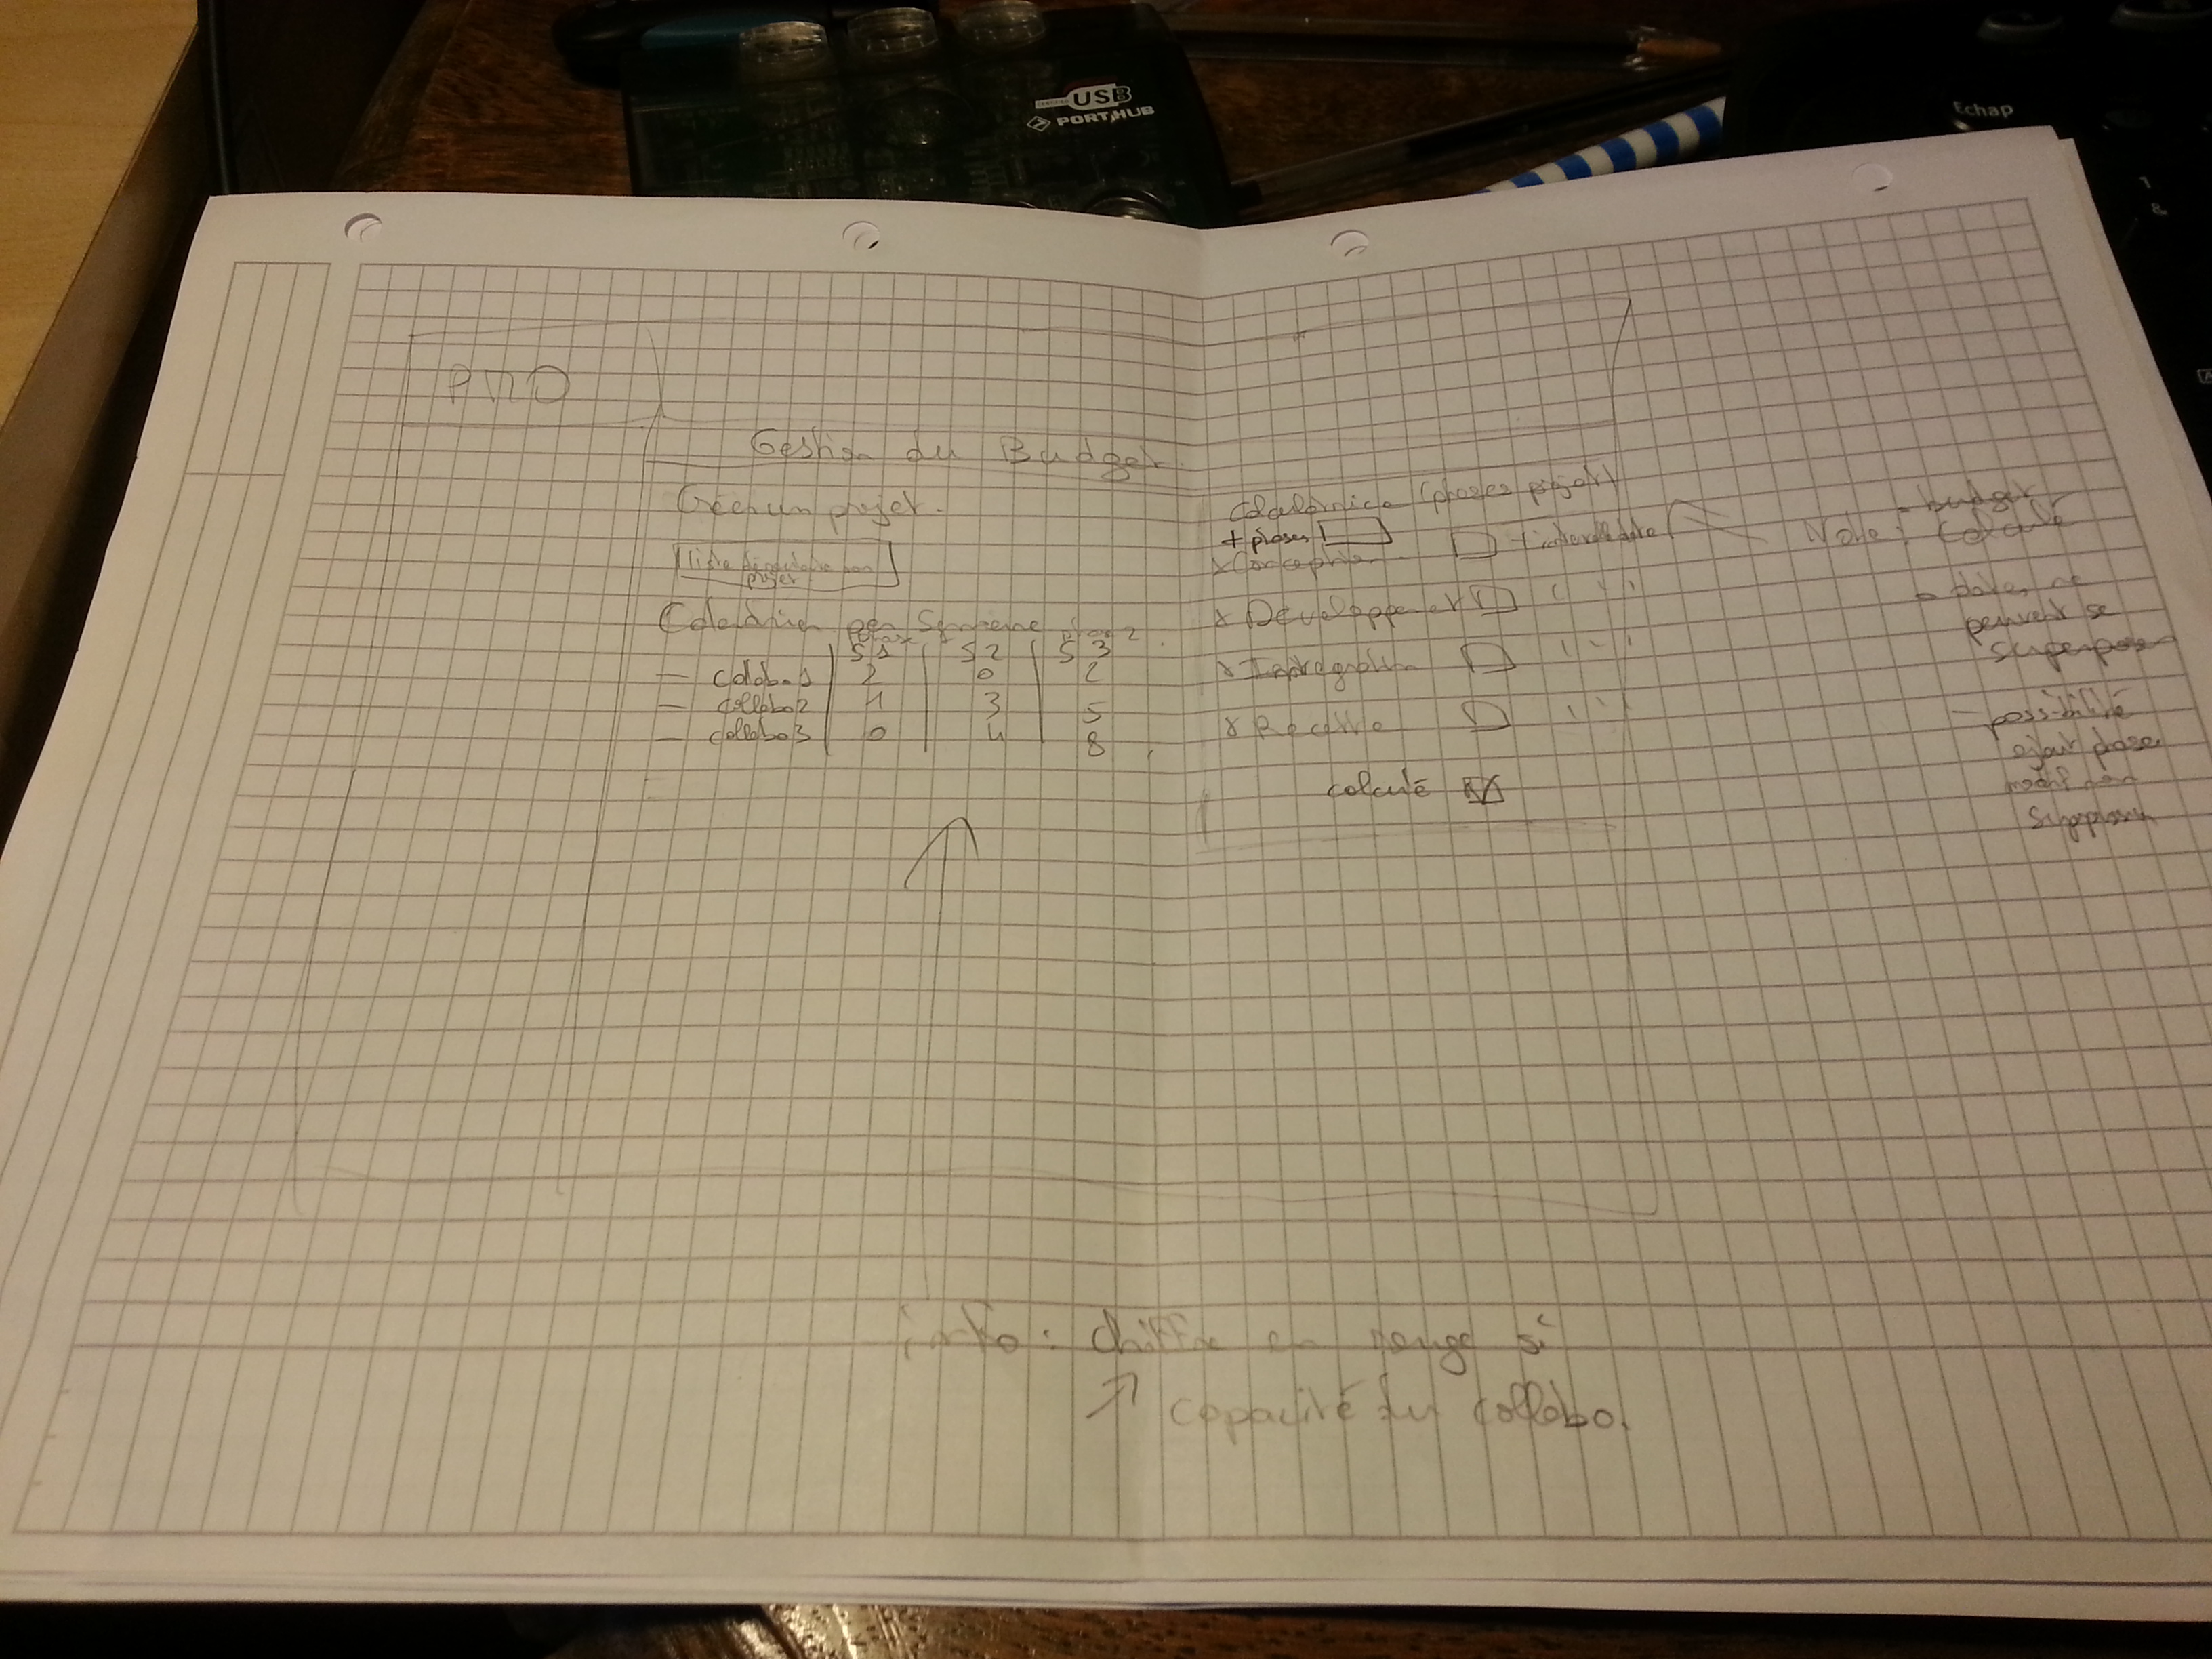 CERTIFIED USB
7 PORT HUB
Echap
1
&
PMO
Gestion du Budget
Créer un projet.
liste déroulante
projet
Calendrier par Semaine
phase phase 2
S1 S2 S3
— collabo1 2 0 2
— collabo2 4 3 5
— collabo3 0 4 8
(phases projet)
+ phases
x Conception
x Développement " "
x Intégration " "
x Recette " "
calculé
Note : - budget
calculé
- dates ne
peuvent se
superposer
- possibilité
ajout phase
modif nom
suppression
info : chiffre en rouge si
↗ capacité du collabo.